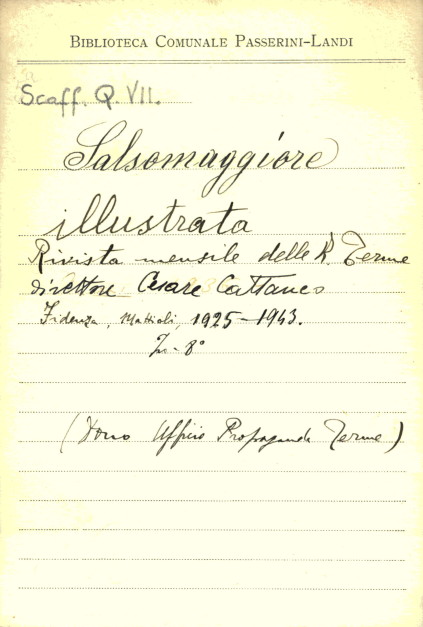 BIBLIOTECA COMUNALE PASSERINI-LANDI
Scaff. Q. VII.
Salsomaggiore
illustrata
Rivista mensile delle R. Terme
direttore Cesare Cattaneo
Fidenza, Mattioli, 1925-1943.
In-8°
(Dono Ufficio Propaganda Terme)